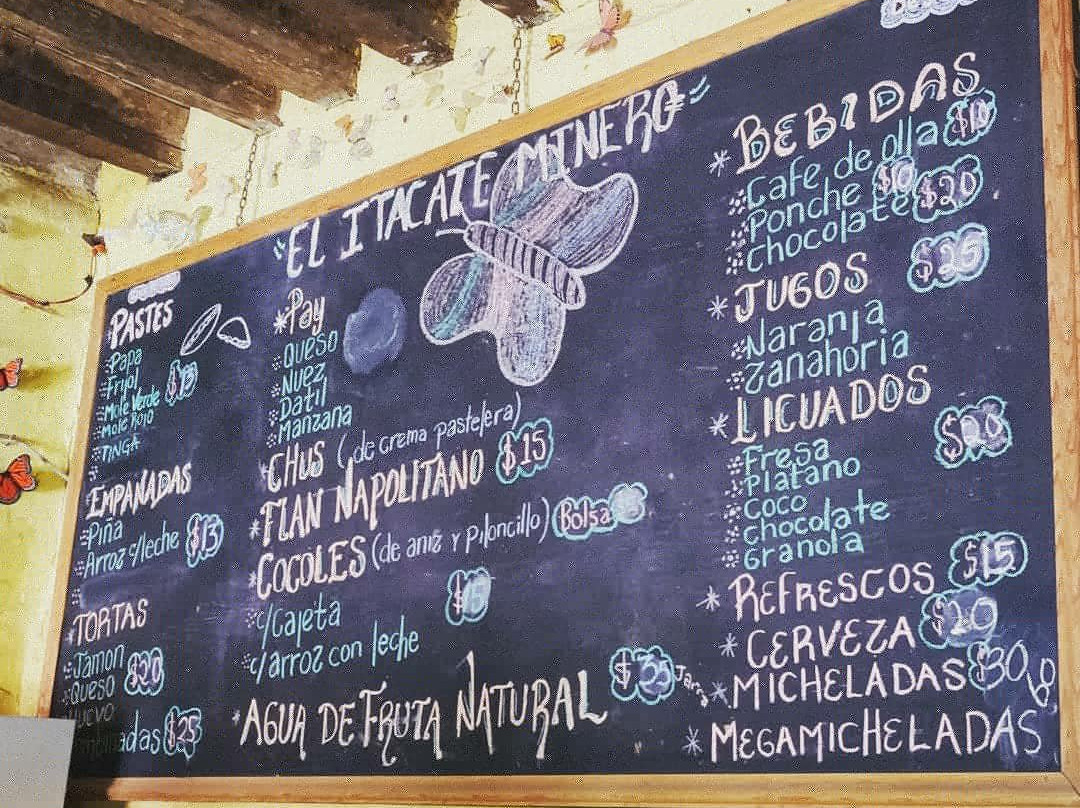 "EL ITACATE MINERO"
PASTES
Papa
Frijol
Mole Verde
Mole Rojo
TINGA
EMPANADAS
Piña
Arroz c/leche $13
*TORTAS
Jamon
Queso $20
Huevo
adas $25
*Pay
Queso
Nuez
Datil
Manzana
*CHUS (de crema pastelera)
*FLAN NAPOLITANO $15
*COCOLES (de aniz y piloncillo) Bolsa
c/cajeta
c/arroz con leche
*AGUA DE FRUTA NATURAL $35 Jarra
*BEBIDAS
Cafe de olla $10
Ponche
Chocolate $20
*JUGOS $25
Naranja
Zanahoria
*LICUADOS
Fresa
Platano
Coco
Chocolate
Granola
*REFRESCOS $15
*CERVEZA $20
*MICHELADAS $30
*MEGAMICHELADAS